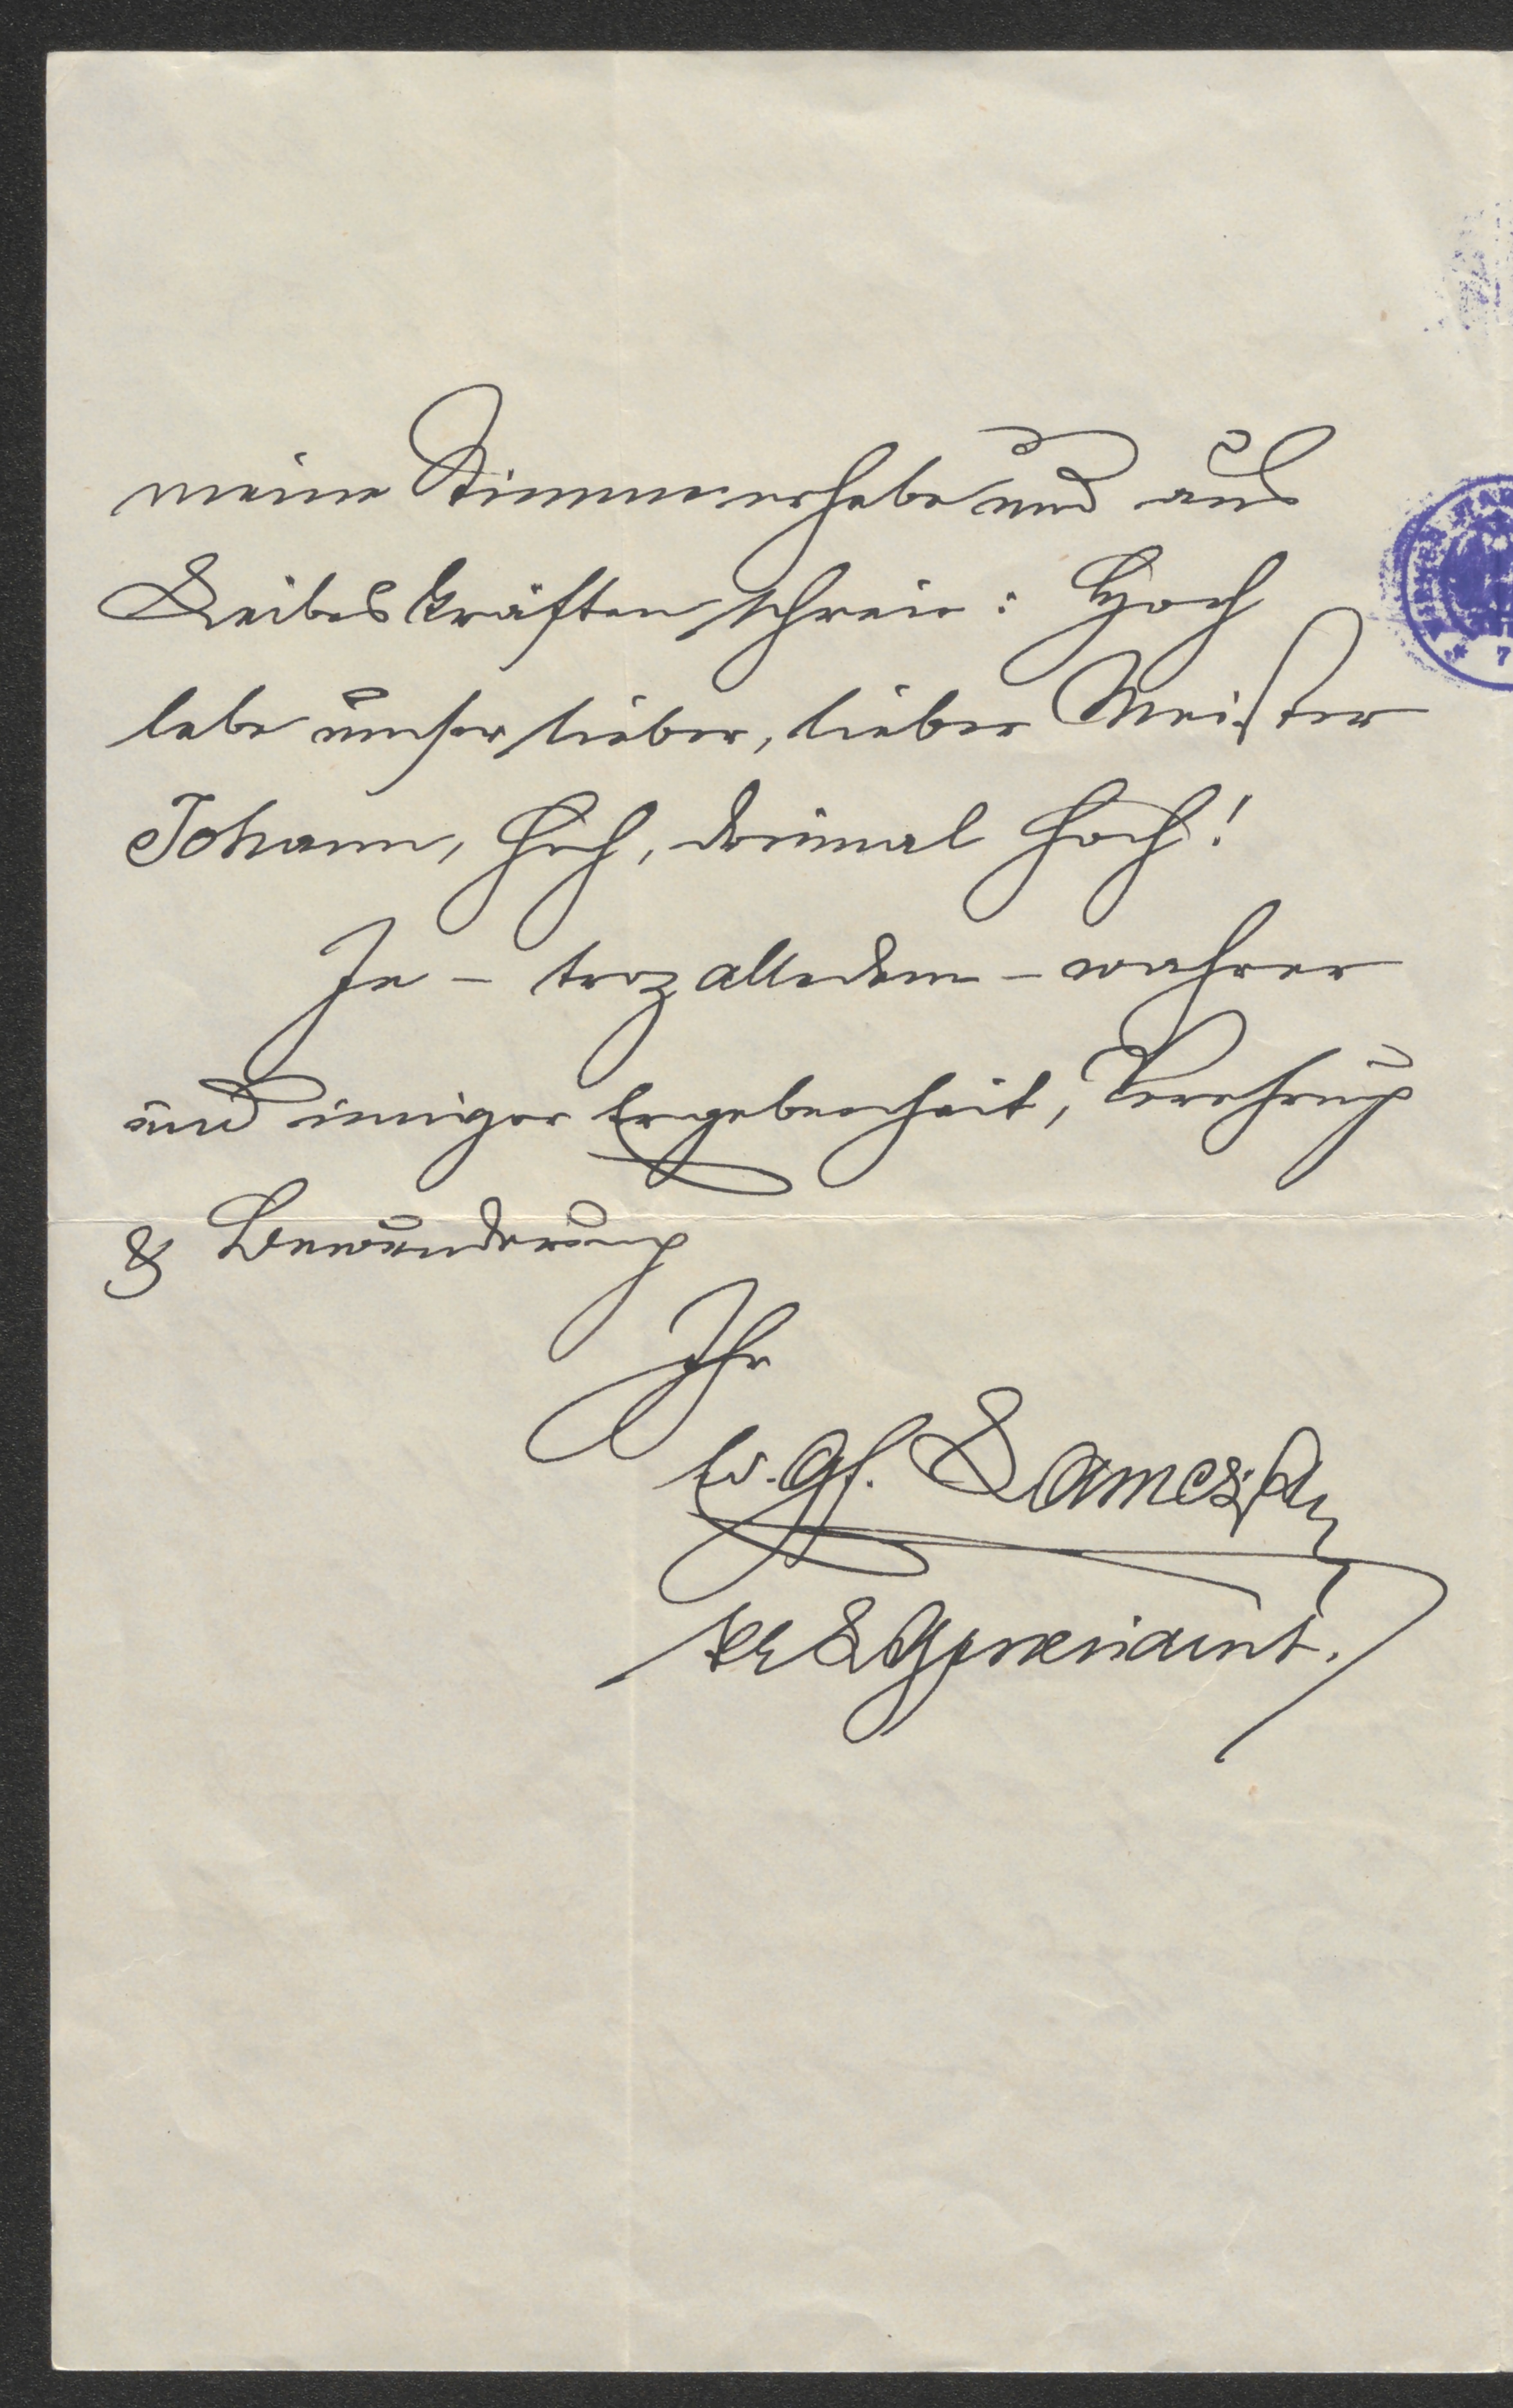 meine Stimme erhebe und aus
Leibeskräften schreie: Hoch
lebe unser lieber, lieber Meister
Johann, hoch, dreimal hoch!
In – troz alledem – wahrer
und inniger Ergebenheit, Verehrung
& Bewunderung
Ihr
7